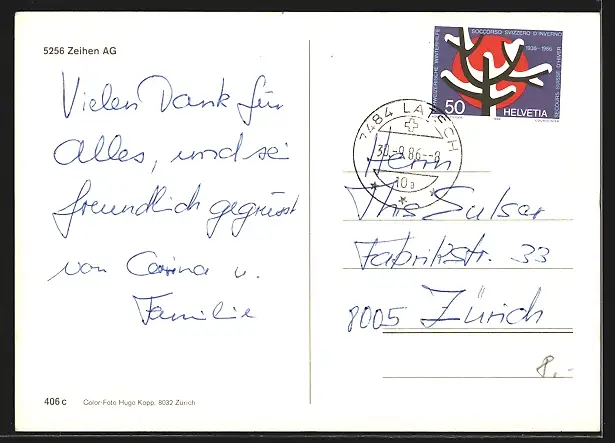 5256 Zeihen AG
Vielen Dank für
Alles, und sei
freundlich gegrüsst
von Carina u.
Familie
406 c
Color-Foto Hugo Kopp, 8032 Zürich
SCHWEIZERISCHE WINTERHILFE
SOCCORSO SVIZZERO D'INVERNO
1936-1986
SECOURS SUISSE D'HIVER
50
HELVETIA
7484 LATSCH
30.-9.86.-8
10a
Herrn
Sulser
Fabrikstr. 33
8005 Zürich
8.-